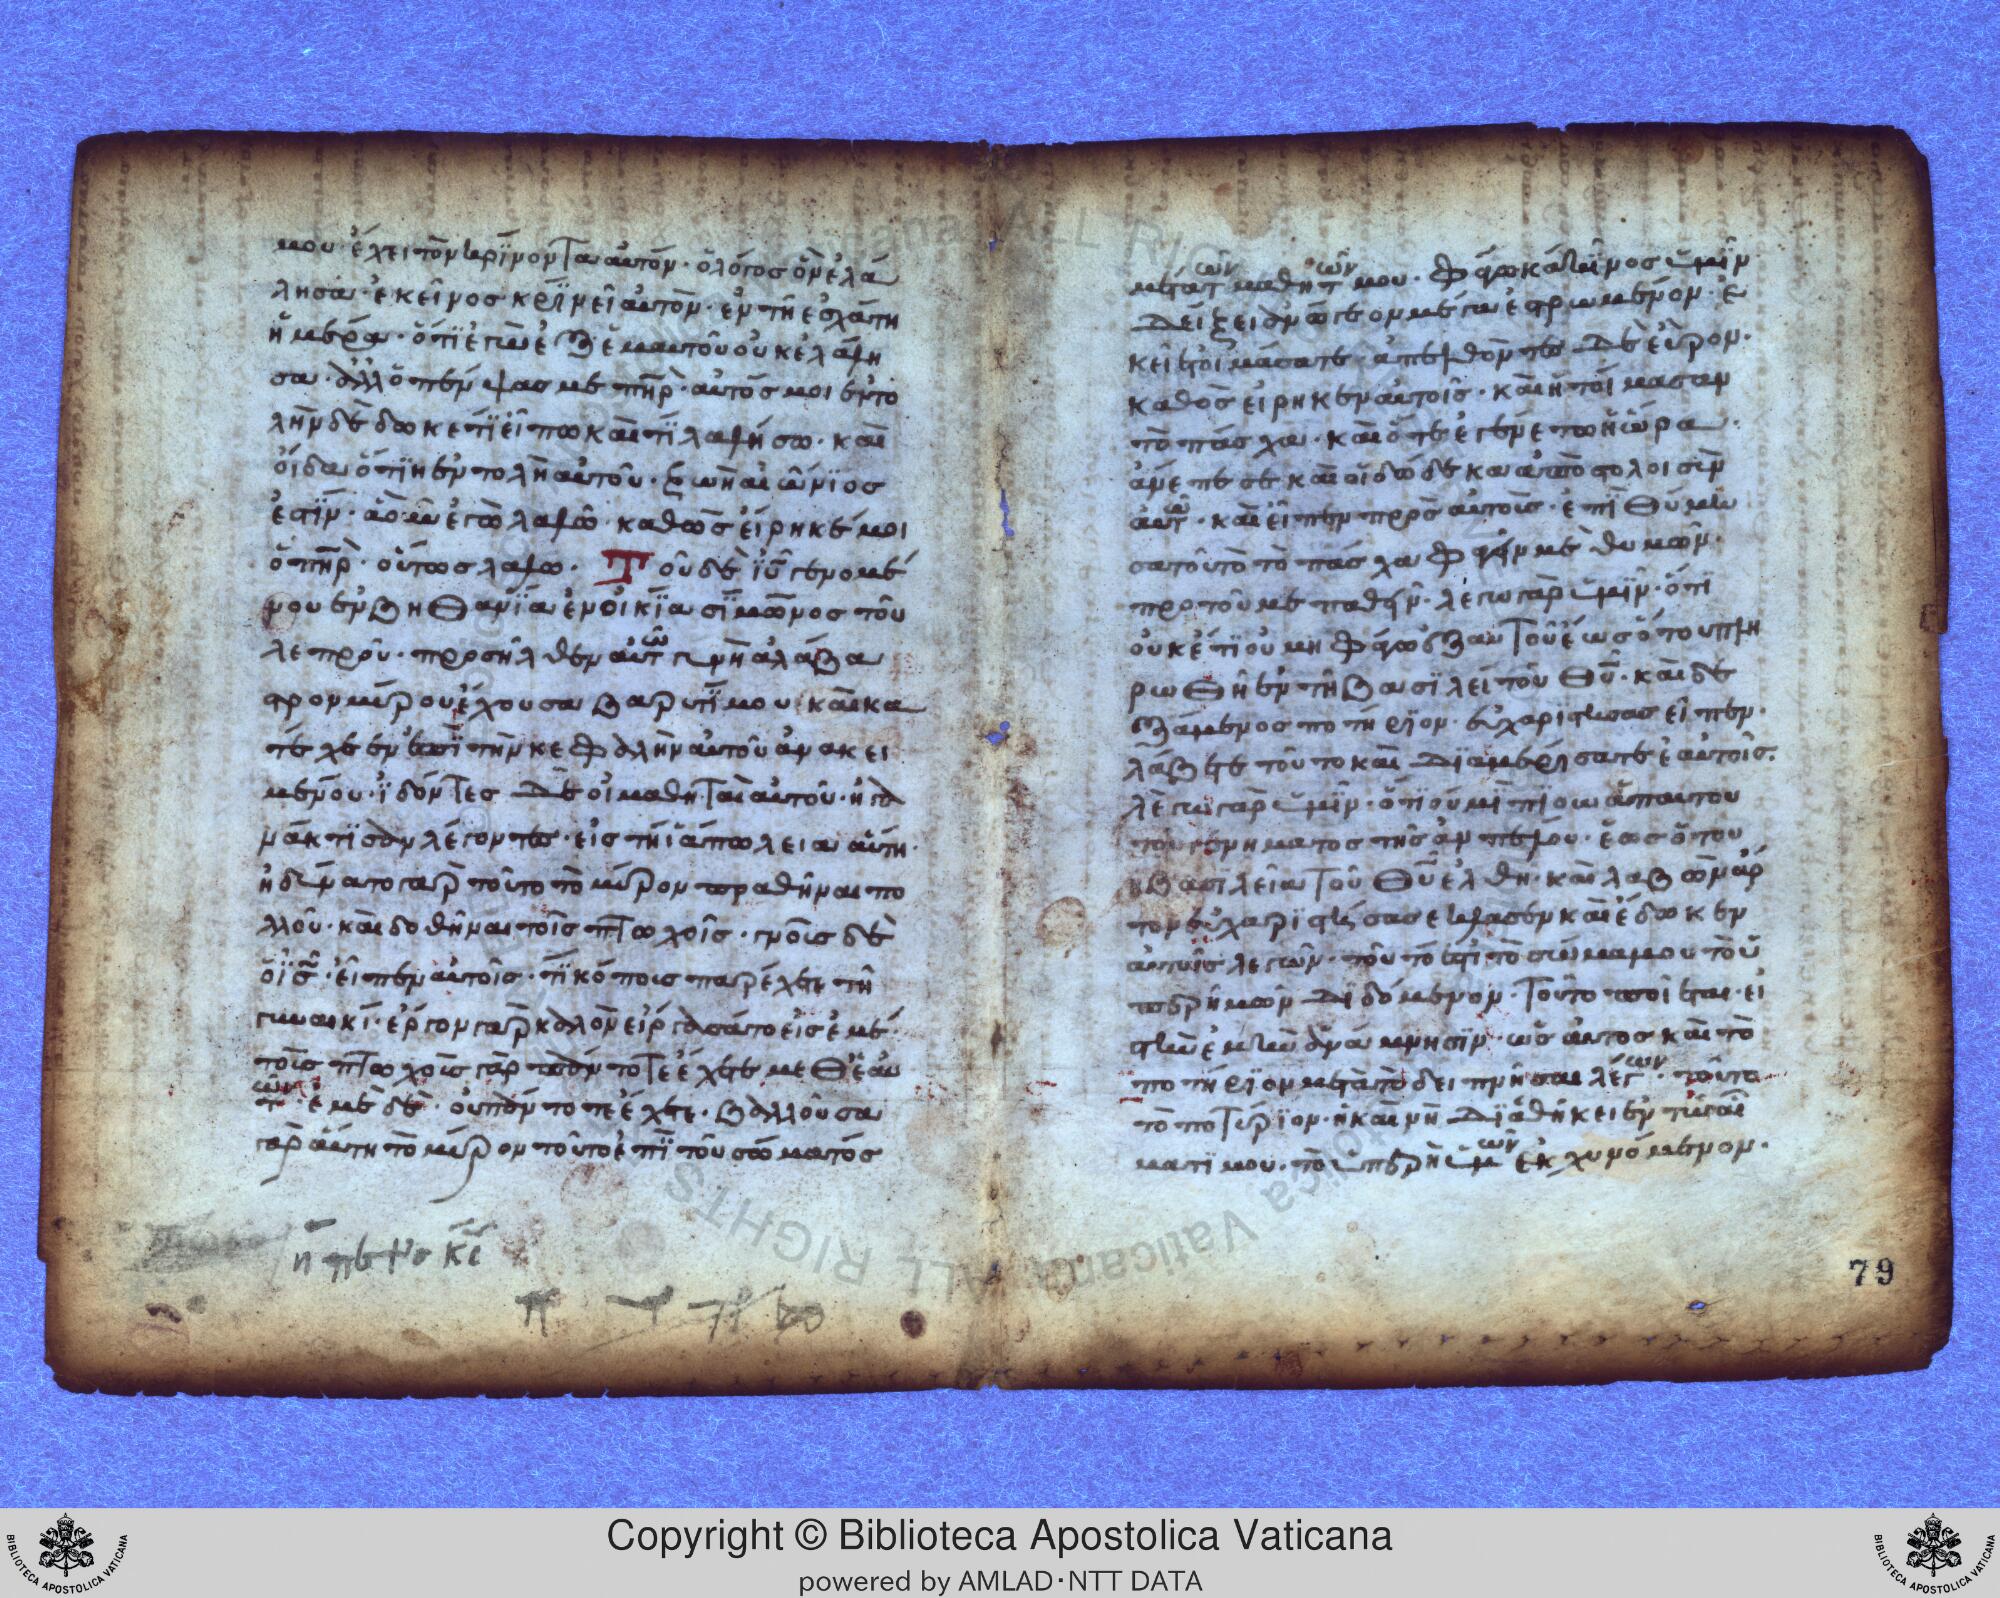 μου· ἔχει τὸν κρίνονταυ αὐτόν· ὁ λόγος ὃν ἐλά
λησα· ἐκεῖνος κρϊνεῖ αὐτὸν· ἐν τῆ ἐσχάτη
ἡμέρα· ὅτϊ ἐγὼ ἐξ ἐμαυτοῦ οὐκ ἐλάλη
σα· ἀλλ ὁ πέμψας με πηρ̅· αὐτός μοι ἐντο
λὴν δέδωκε τϊ εἴπω καὶ τϊ λαλήσω· καὶ
οἶδα ὅτϊ ἡ ἐντολὴ αὐτοῦ· ζωὴ αἰώνϊος
ἐστϊν· ἃ οὖν ἐγὼ λαλῶ· καθὼς εἴρηκέ μοι
ὁ πηρ̅· οὕτως λαλῶ· Τοῦ δὲ ιυ̅ γενομέ
νου ἐν βηθανϊα ἐν οἰκϊα σϊμωνος τοῦ
λεπροῦ· προσῆλθεν αὐτῶ γυνὴ ἀλάβα
στρον μύρου ἔχουσα βαρυτϊμου καὶ κα
τέχεεν ἐπὶ τὴν κεφαλὴν αὐτοῦ ἀνακει
μένου· ϊδόντες δὲ οἱ μαθηταὶ αὐτοῦ· ἠγα
νάκτϊσαν λέγοντες· εἰς τῆ ἀπώλεια αὕτη·
ἠδύνατο γαρ τοῦτο τὸ μύρον πραθῆναι πο
λλοῦ· καὶ δοθῆναι τοῖς πτωχοῖς· γνοὺς δὲ
ὁ ις̅· εἶπεν αὐτοῖς· τϊ κόπους παρέχετε τῆ
γυναικί· ἔργον γαρ καλὸν εἰργάσατο εἰς ἐμέ·
τοὺς πτωχοὺς γὰρ πάντοτε ἔχετε μεθ ἑαυ
τῶν· ἐμὲ δὲ· οὐ πάντοτε ἔχετε· βαλλοῦσα
γὰρ αὕτη τὸ μύρον τοῦτο ἐπϊ τοῦ σώματός
ἡ τε
μετὰ τῶν μαθητῶν μου· φάγω κἀκεῖνος ὑμῖν
δείξει ἀνώγεον μέγα ἐστρωμένον· ἐ
κεῖ ἑτοιμάσατε· ἀπελθόντες δὲ εὗρον·
καθὼς εἴρηκεν αὐτοῖς· καὶ ἡτοίμασαν
τὸ πάσχα· καὶ ὅτε ἐγένετο ἡ ὥρα·
ἀνέπεσε καὶ οἱ δώδεκα ἀπόστολοι σὺν
αὐτῶ· καὶ εἶπεν πρὸς αὐτοὺς· ἐπϊθύμϊα
σα τοῦτο τὸ πάσχα φαγεῖν μεθ υμῶν·
πρὸ τοῦ με παθεῖν· λέγω γὰρ ὑμῖν· ὅτϊ
οὐκέτϊ οὐ μη φάγω ἐξ αὐτοῦ ἕως ὅτου πλη
ρωθῆ ἐν τῆ βασϊλεί τοῦ θυ̅· καὶ δε
ξάμενος ποτήρϊον· εὐχαριστήσας εἶπεν·
λάβετε τοῦτο καὶ δϊαμερίσατε ἑαυτοῖς·
λέγω γὰρ ὑμῖν· ὅτϊ οὐ μὶ πϊω ἀπὸ τοῦ
γενήματος τῆς ἀμπέλου· ἕως ὅτου
ἡ βασϊλεία τοῦ θυ̅ ἔλθη· καὶ λαβὼν ἄρ
τον εὐχαρϊστήσας ἔκλασεν καὶ ἔδωκεν
αὐτοῖς λέγων· τοῦτό ἐστϊ τὸ σῶμα μου τὸ ὑ
πὲρ ἡμῶν δϊδόμενον· τοῦτο ποιεῖται· εἰ
ς τὴν ἐμὴν ἀνάμνησϊν· ὡς αὕτος καὶ τὸ
ποτήρϊον μετὰ τὸ δειπνῆσαι λέγων· τοῦτο
τὸ ποτήρϊον· ἡ καινὴ δϊαθήκει ἐν τῶ αἵ
ματϊ μου· τὸ ὑπὲρ ὑμῶν ἐκχυνόμενον·
79
Copyright © Biblioteca Apostolica Vaticana
powered by AMLAD·NTT DATA
BIBLIOTECA APOSTOLICA VATICANA
BIBLIOTECA APOSTOLICA VATICANA